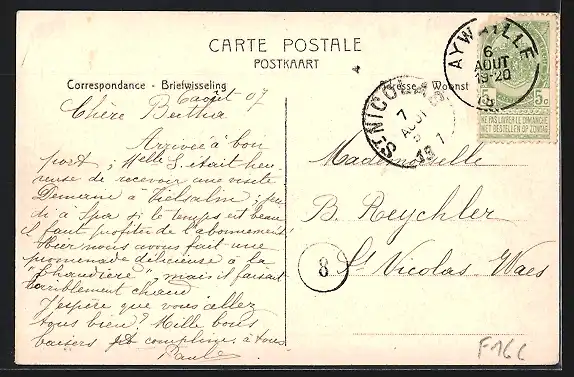 CARTE POSTALE
POSTKAART
Correspondance - Briefwisseling
Adresse - Woonst
6 août 07
Chère Bertha
Arrivée à bon
port; Melle S. était heu
reuse de recevoir une visite
Demain à Vielsalm, jeu
di à Spa si le temps est beau
il faut profiter de l'abonnement
Hier nous avons fait une
promenade délicieuse à la
"Chaudière", mais il faisait
terriblement chaud
J'espère que vous allez
tous bien? Mille bons
baisers et complim. à tous
Paula
AYWAILLE
6
AOUT
19-20
5c 5c
NE PAS LIVRER LE DIMANCHE
NIET BESTELLEN OP ZONDAG
ST-NICOLAS
7
AOUT
Mademoiselle
B. Reychler
St Nicolas Waes
8
F16C